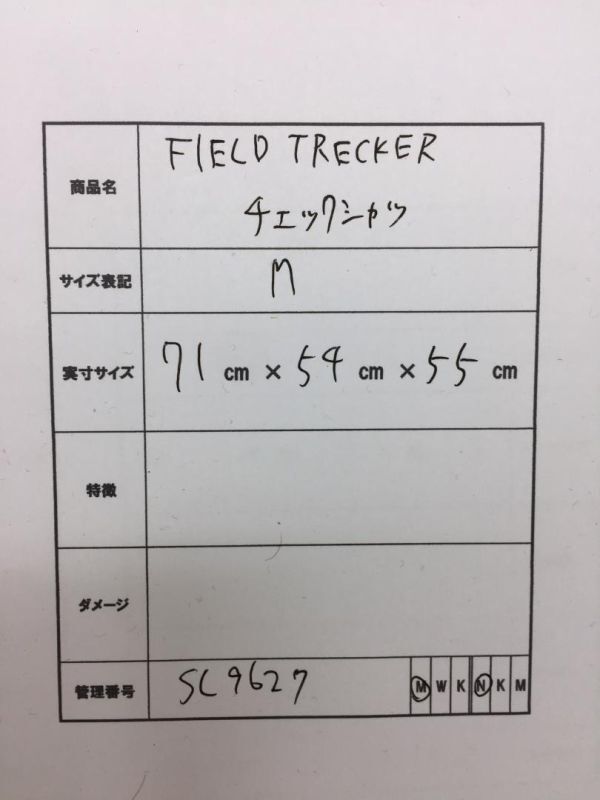 商品名
FIELD TRECKER
チェックシャツ
サイズ表記
M
実寸サイズ
71 cm × 54 cm × 55 cm
特徴
ダメージ
管理番号
SC9627
M W K N K M